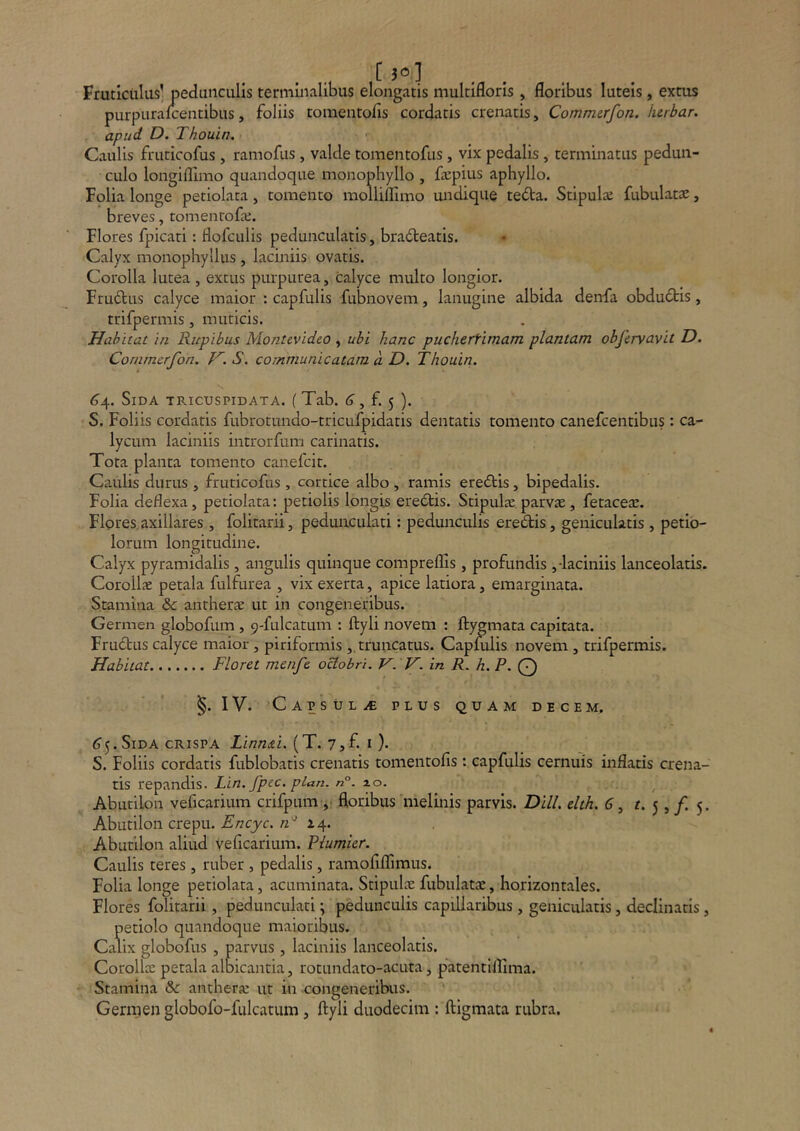 [ 30 ]
Fruticulus' pedunculis terminalibus elongatis multifloris , floribus luteis , extus
purpuraſcentibus , foliis tomentoſis cordatis crenatis, Commerſon. herbar.
apud D. Thouin.
Caulis fruticoſus , ramoſus , valde tomentoſus , vix pedalis , terminatus pedun-
culo longiſſimo quandoque monophyllo , ſæpius aphyllo.
Folia longe petiolata , tomento molliſſimo undique tecta. Stipulæ ſubulatæ ,
breves , tomentoſæ.
Flores ſpicati : floſculis pedunculatis , bracteatis.
Calyx monophyllus , laciniis ovatis.
Corolla lutea , extus purpurea , calyce multo longior.
Fructus calyce maior : capſulis ſubnovem , lanugine albida denſa obductis ,
triſpermis , muticis.
Habitat in Rupibus Montevideo , ubi hanc pucherrimam plantam obſervavit D.
Commerſon. V. S. communicatam à D. Thouin.
64. SIDA TRICUSPIDATA. ( Tab. 6 , f. 5 ).
S. Foliis cordatis ſubrotundo-tricuſpidatis dentatis tomento caneſcentibus : ca-
lycum laciniis introrſum carinatis.
Tota planta tomento caneſcit.
Caulis durus , fruticoſus , cortice albo , ramis erectis , bipedalis.
Folia deflexa , petiolata : petiolis longis erectis. Stipulæ parvæ , ſetaceæ.
Flores axillares , ſolitarii , pedunculati : pedunculis erectis , geniculatis , petio-
lorum longitudine.
Calyx pyramidalis , angulis quinque compreſſis , profundis , laciniis lanceolatis.
Corollæ petala ſulfurea , vix exerta , apice latiora , emarginata.
Stamina & antheræ ut in congeneribus.
Germen globoſum , 9-ſulcatum : ſtyli novem : ſtygmata capitata.
Fructus calyce maior , piriformis , truncatus. Capſulis novem , triſpermis.
Habitat....... Floret menſe octobri. V. V. in R. h. P. ⊙
§. IV. CAPSULÆ PLUS QUAM DECEM.
65. SIDA CRISPA Linnæi. ( T. 7 , f. 1 ).
S. Foliis cordatis ſublobatis crenatis tomentoſis : capſulis cernuis inflatis crena-
tis repandis. Lin. ſpec. plan. n°. 20.
Abutilon veſicarium criſpum , floribus melinis parvis. Dill. elth. 6 , t. 5 , f. 5.
Abutilon crepu. Encyc. n° 24.
Abutilon aliud veſicarium. Plumier.
Caulis teres , ruber , pedalis , ramoſiſſimus.
Folia longe petiolata , acuminata. Stipulæ ſubulatæ , horizontales.
Flores ſolitarii , pedunculati ; pedunculis capillaribus , geniculatis , declinatis ,
petiolo quandoque maioribus.
Calix globoſus , parvus , laciniis lanceolatis.
Corollæ petala albicantia , rotundato-acuta , patentiſſima.
Stamina & antheræ ut in congeneribus.
Germen globoſo-ſulcatum , ſtyli duodecim : ſtigmata rubra.